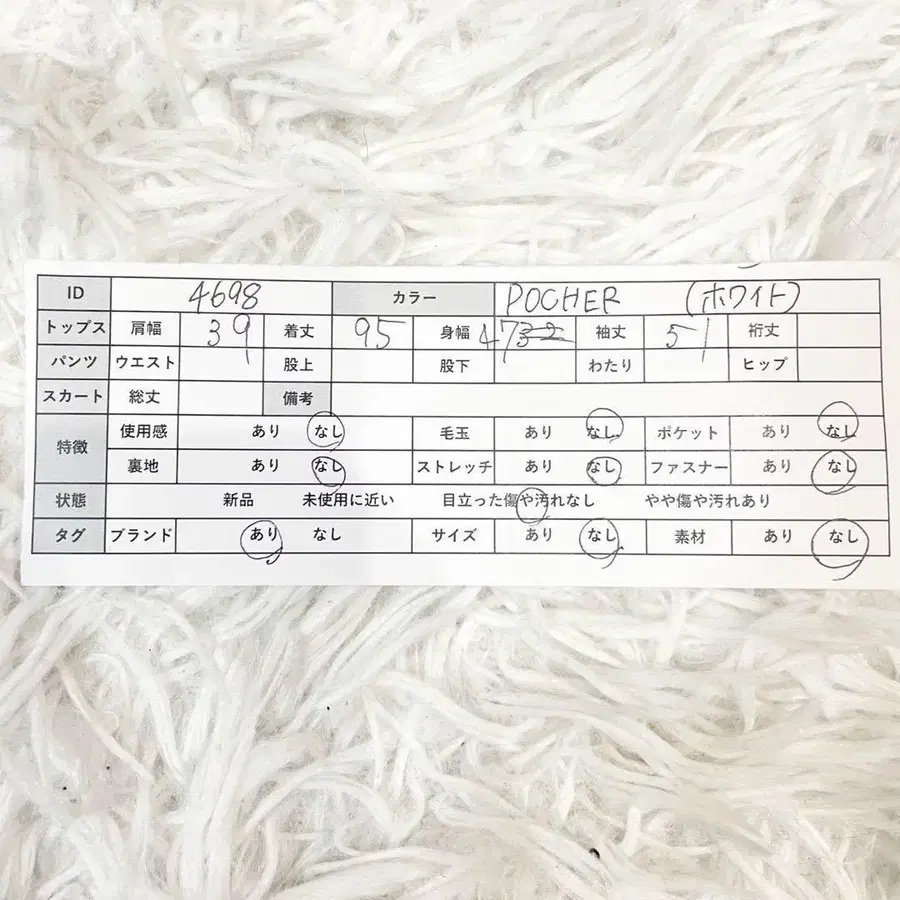 ID 4698 カラー POCHER (ホワイト)
トップス 肩幅 39 着丈 95 身幅 47 袖丈 51 裄丈
パンツ ウエスト 股上 股下 わたり ヒップ
スカート 総丈 備考
特徴 使用感 あり なし 毛玉 あり なし ポケット あり なし
裏地 あり なし ストレッチ あり なし ファスナー あり なし
状態 新品 未使用に近い 目立った傷や汚れなし やや傷や汚れあり
タグ ブランド あり なし サイズ あり なし 素材 あり なし